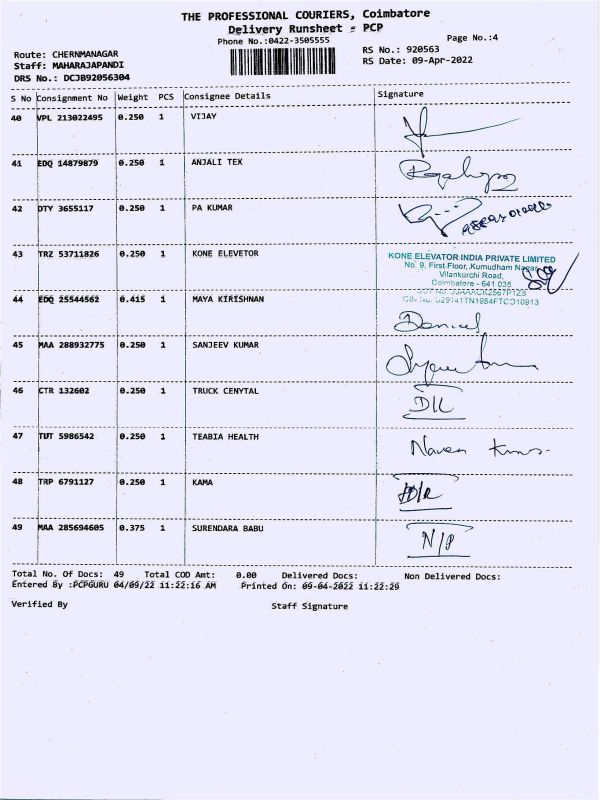 THE PROFESSIONAL COURIERS, Coimbatore
Delivery Runsheet - PCP
Phone No.:0422-3505555
Page No.:4
Route: CHERNMANAGAR
RS No.: 920563
Staff: MAHARAJAPANDI
RS Date: 09-Apr-2022
DRS No.: DCJB92056304
S No Consignment No Weight PCS Consignee Details Signature
40 VPL 213022495 0.250 1 VIJAY
41 EDQ 14879879 0.250 1 ANJALI TEX
42 DTY 3655117 0.250 1 PA KUMAR
43 TRZ 53711826 0.250 1 KONE ELEVETOR
KONE ELEVATOR INDIA PRIVATE LIMITED
No. 9, First Floor, Kumudham Nagar,
Vilankurchi Road,
Coimbatore - 641 035
44 EDQ 25544562 0.415 1 MAYA KIRISHNAN Daniel
45 MAA 288932775 0.250 1 SANJEEV KUMAR
46 CTR 132602 0.250 1 TRUCK CENYTAL D/L
47 TUT 5986542 0.250 1 TEABIA HEALTH Naveen Kumar
48 TRP 6791127 0.250 1 KAMA
49 MAA 285694605 0.375 1 SURENDARA BABU N/P
Total No. Of Docs: 49 Total COD Amt: 0.00 Delivered Docs: Non Delivered Docs:
Entered By :PCPGURU 04/09/22 11:22:16 AM Printed On: 09-04-2022 11:22:29
Verified By Staff Signature